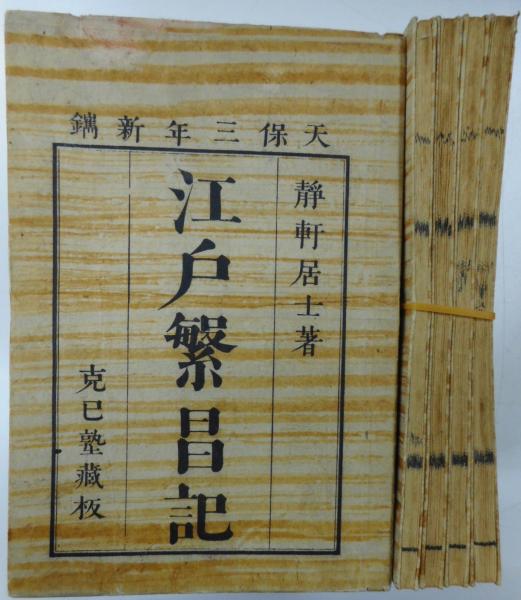 天保三年新鐫
靜軒居士著
江戶繁昌記
克己塾藏板